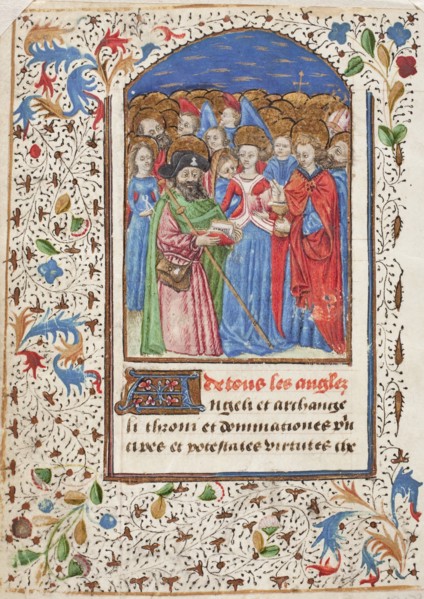 De tous les anglez
Angeli et archange
li throni et dominationes
cipes et potestates virtutes